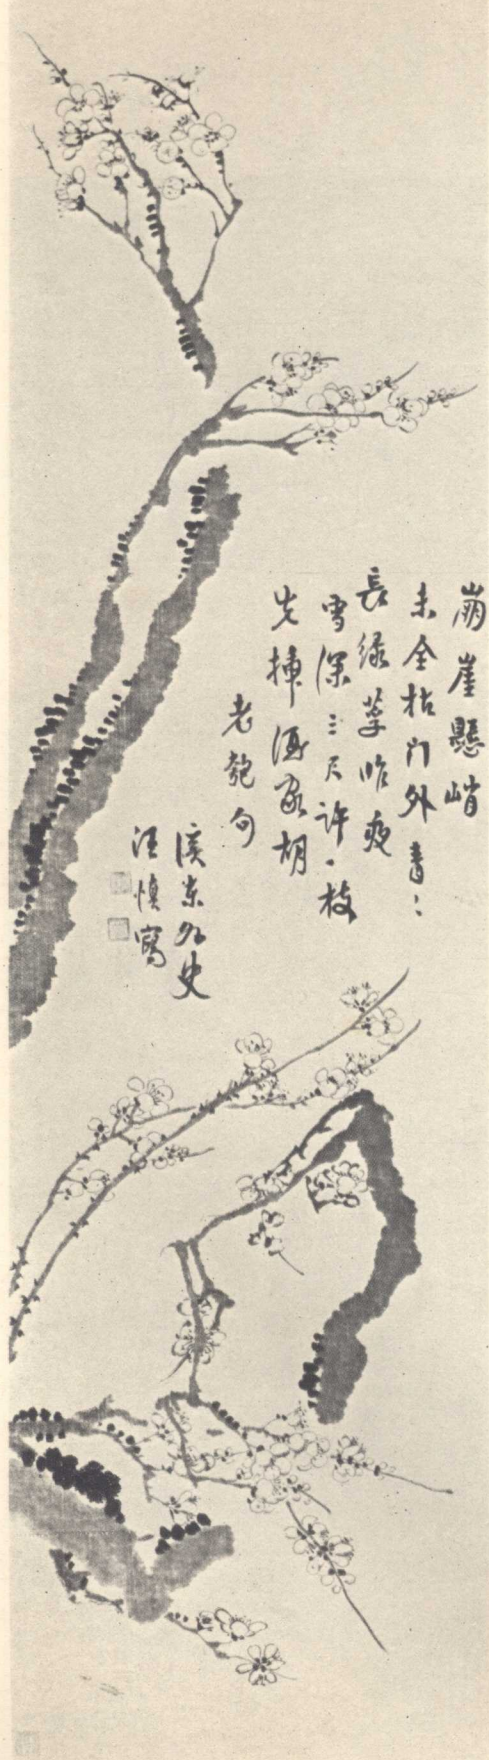 崩崖懸峭
未全枯門外青〻
長綠莩昨夜
雪深三尺許一枝
先揀酒家胡
老匏句
溪東外史
汪慎寫